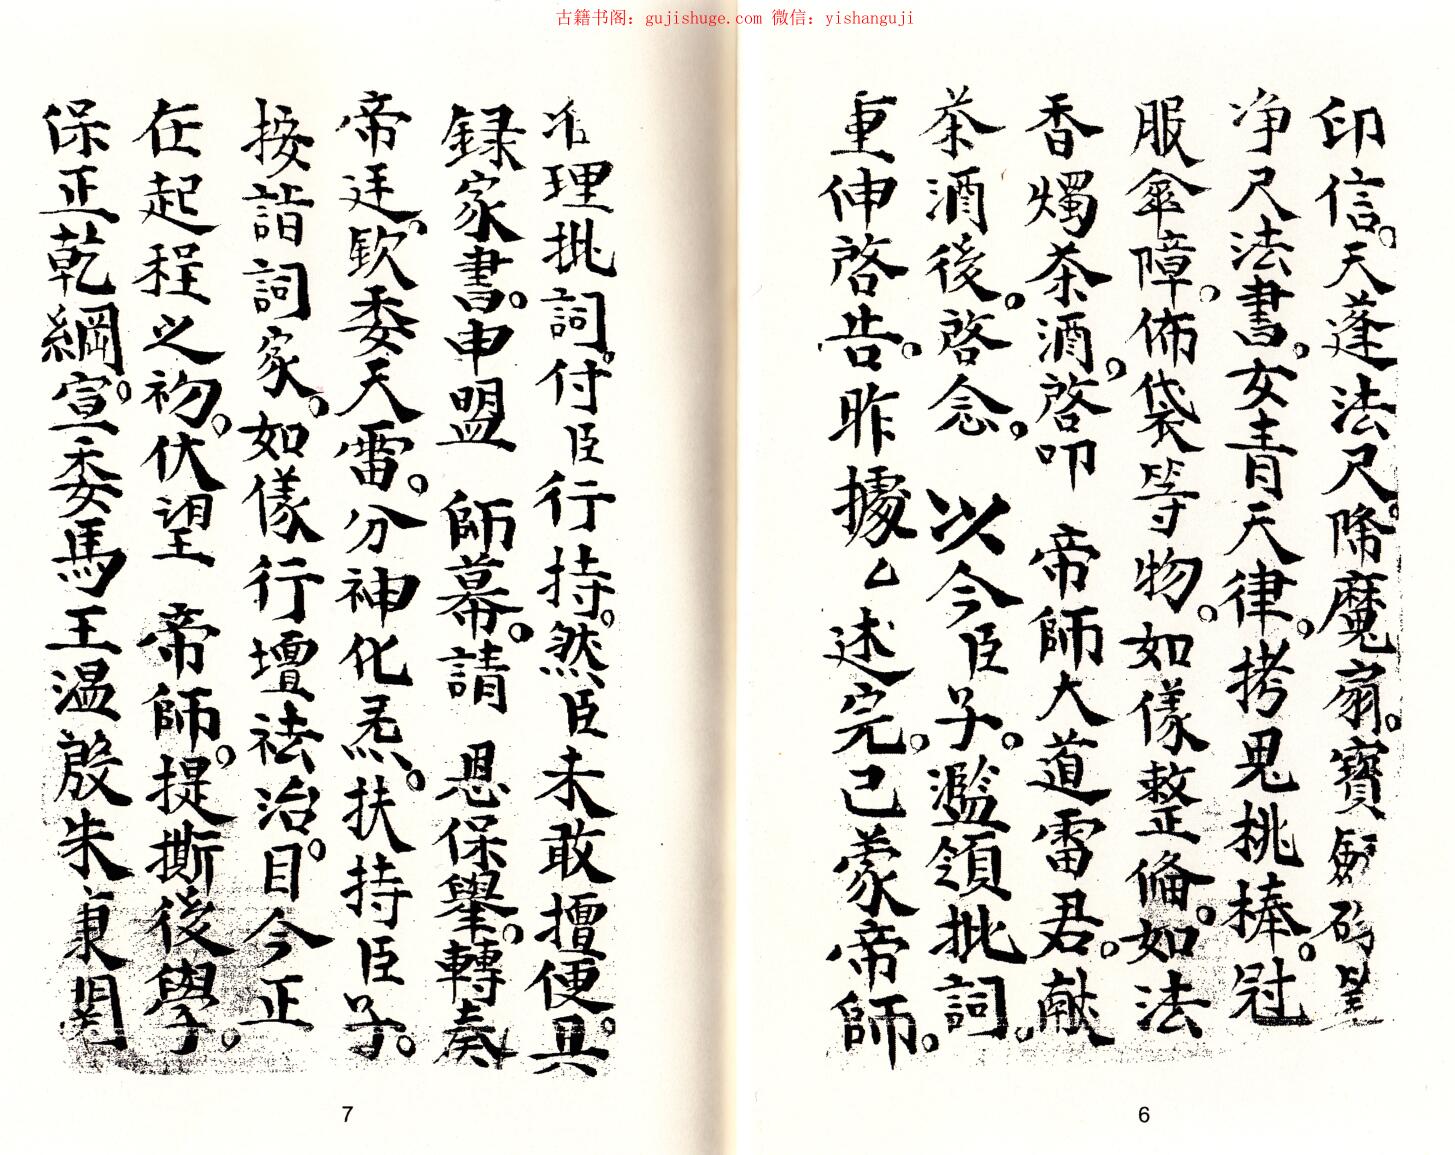 古籍书阁：gujishuge.com 微信：yishanguji
印信。天蓬法尺。降魔扇。寶劍
净尺法書。女青天律。拷鬼桃棒。冠
服傘障。佈袋等物。如儀整俻。如法
香燭茶酒。啓叩 帝師大道雷君。献
茶酒後。啓念。以今臣子。濫領批詞。
重伸啓告。昨據厶述完。已蒙帝師。
理批詞。付臣行持。然臣未敢擅便。具
録家書。申盟 師幕。請 恩保舉。轉奏
帝廷。欽委天雷。分神化炁。扶持臣子。
按詣詞家。如儀行壇袪治。目今正
在起程之初。伏望 帝師。提撕後學。
保正乾綱。宣委馬王溫殷朱康関
7
6